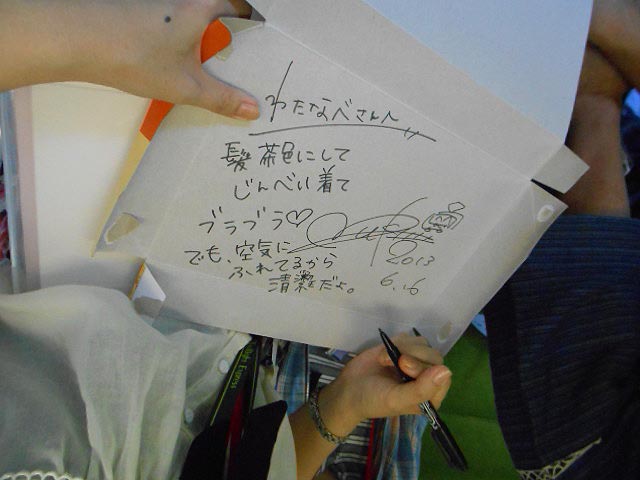 わたなべさん
髪茶色にして
じんべい着て
ブラブラ♡
でも、空気に
ふれてるから
清潔だよ。
2013
6.16